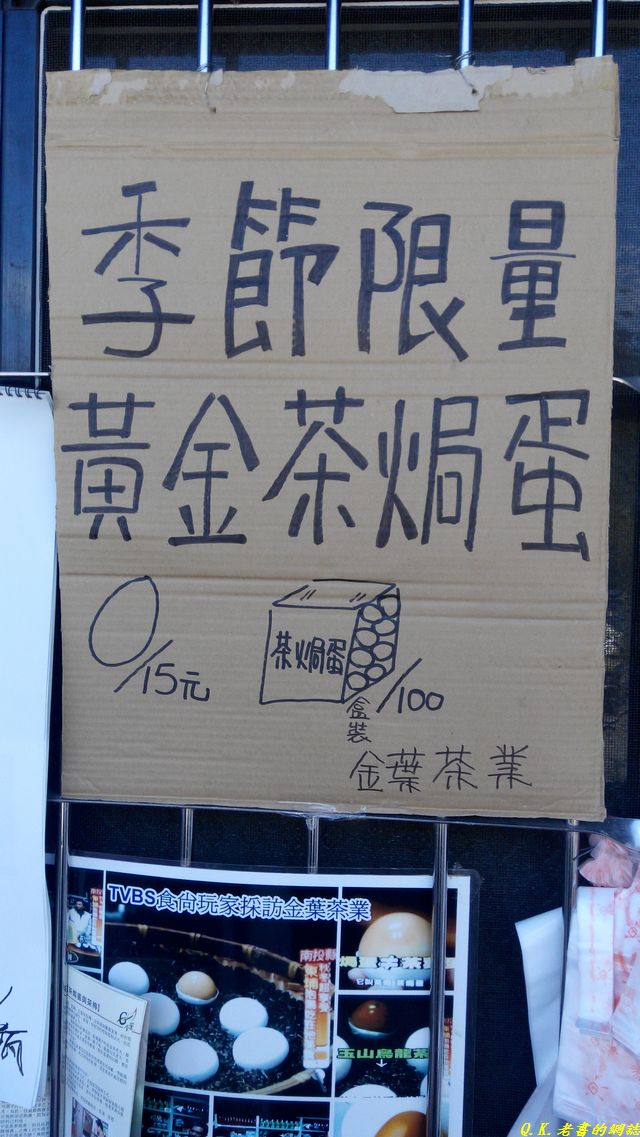 季節限量
黃金茶焗蛋
/15元
茶焗蛋
/100
盒裝
金葉茶業
TVBS食尚玩家採訪金葉茶業
南投縣
玉山烏龍茶
Q.K.老書的網誌